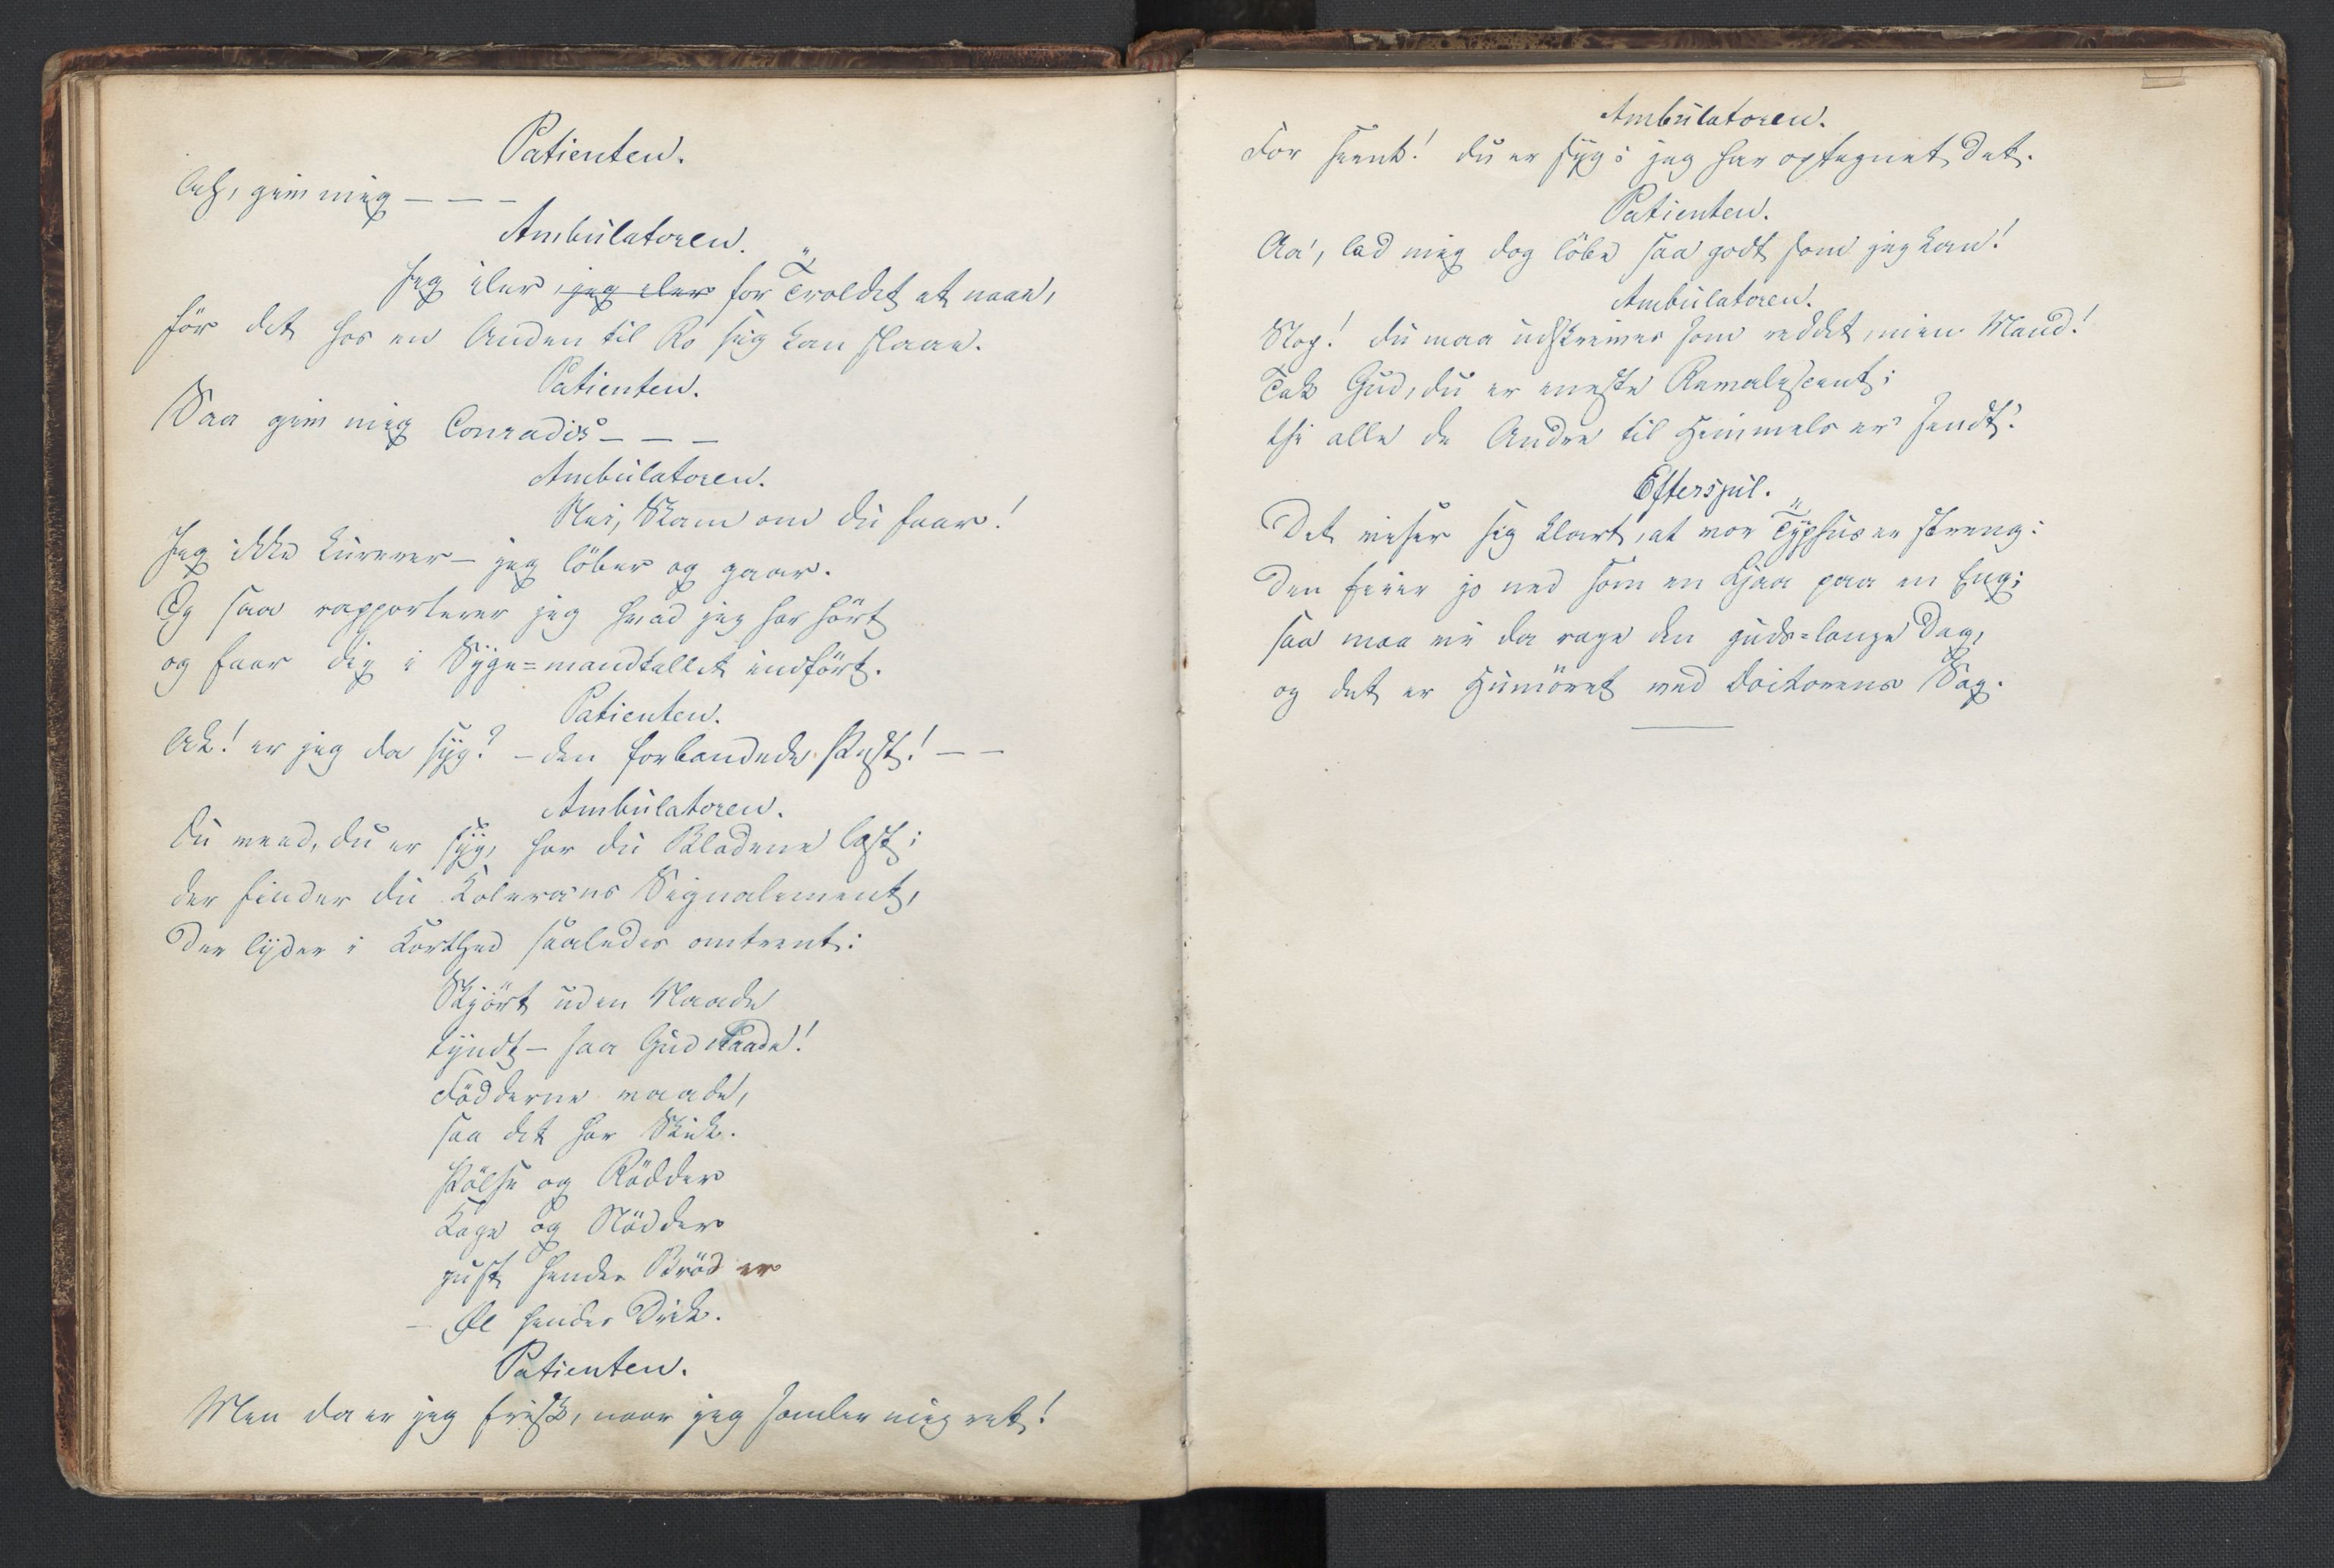 Patienten.
Ach, giv mig – – –
Ambulatoren.
Jeg iler, jeg iler for Troldet at naae,
før det hos en Anden til Ro sig kan slaae.
Patienten.
Saa giv mig Conradis – – –
Ambulatoren.
Nei, Skam om du faar!
Jeg ikke kurerer – jeg løber og gaar.
Og saa rapporterer jeg hvad jeg har hørt
og faar dig i Syge=mandtallet indført.
Patienten.
Ak! er jeg da syg? – den forbandede Pest! – –
Ambulatoren.
Du veed, du er syg, har du Bladene læst;
der finder du Kolera'ns Signalement,
Der lyder i Korthed saaledes omtrent:
Skjørt uden Maade
tyndt – saa Gud raade!
Fødderne vaade,
saa det har Skik.
Pølse og Rødder
Kage og Nødder
just hendes Brød er
– Øl hendes Drik.
Patienten.
Men da er jeg frisk, naar jeg samler mig ret!
Ambulatoren.
For seent! du er syg: jeg har optegnet det.
Patienten.
Aa, lad mig dog løbe saa godt som jeg kan!
Ambulatoren.
Stop! du maa udskrives som reddet, min Mand!
Tak Gud, du er eneste Revalescent;
thi alle de Andre til Himmels er sendt.
Efterspil.
Det viser sig klart, at vor Typhus er streng:
Den feier jo ned som en Ljaa paa en Eng;
saa maa vi da rage den guds=lange Dag,
og det er Humøret ved Doktorens Sag.